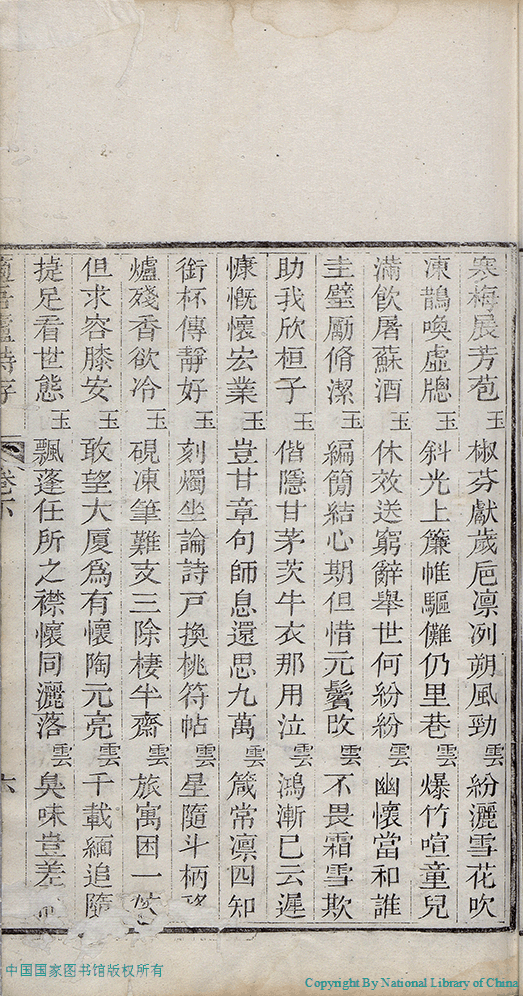 寒梅展芳苞玉椒芬獻歲巵凛冽朔風勁雲紛灑雪花吹
凍鵲喚虛牕玉斜光上簾帷驅儺仍里巷雲爆竹喧童兒
滿飲屠蘇酒玉休效送窮辭舉世何紛紛雲幽懷當和誰
圭璧勵脩潔玉編簡結心期但惜元鬢改雲不畏霜雪欺
助我欣桓子玉偕隱甘茅茨牛衣那用泣雲鴻漸已云遲
慷慨懷宏業玉豈甘章句師息還思九萬雲箴常凛四知
銜杯傳靜好玉刻燭坐論詩戸換桃符帖雲星隨斗柄移
爐殘香欲冷玉硯凍筆難支三除棲半齋雲旅寓困一
但求容膝安玉敢望大厦爲有懷陶元亮雲千載緬追隨
捷足看世態玉飄蓬任所之襟懷同灑落雲臭味豈差
卷下
六
中国国家图书馆版权所有
Copyright By National Library of China